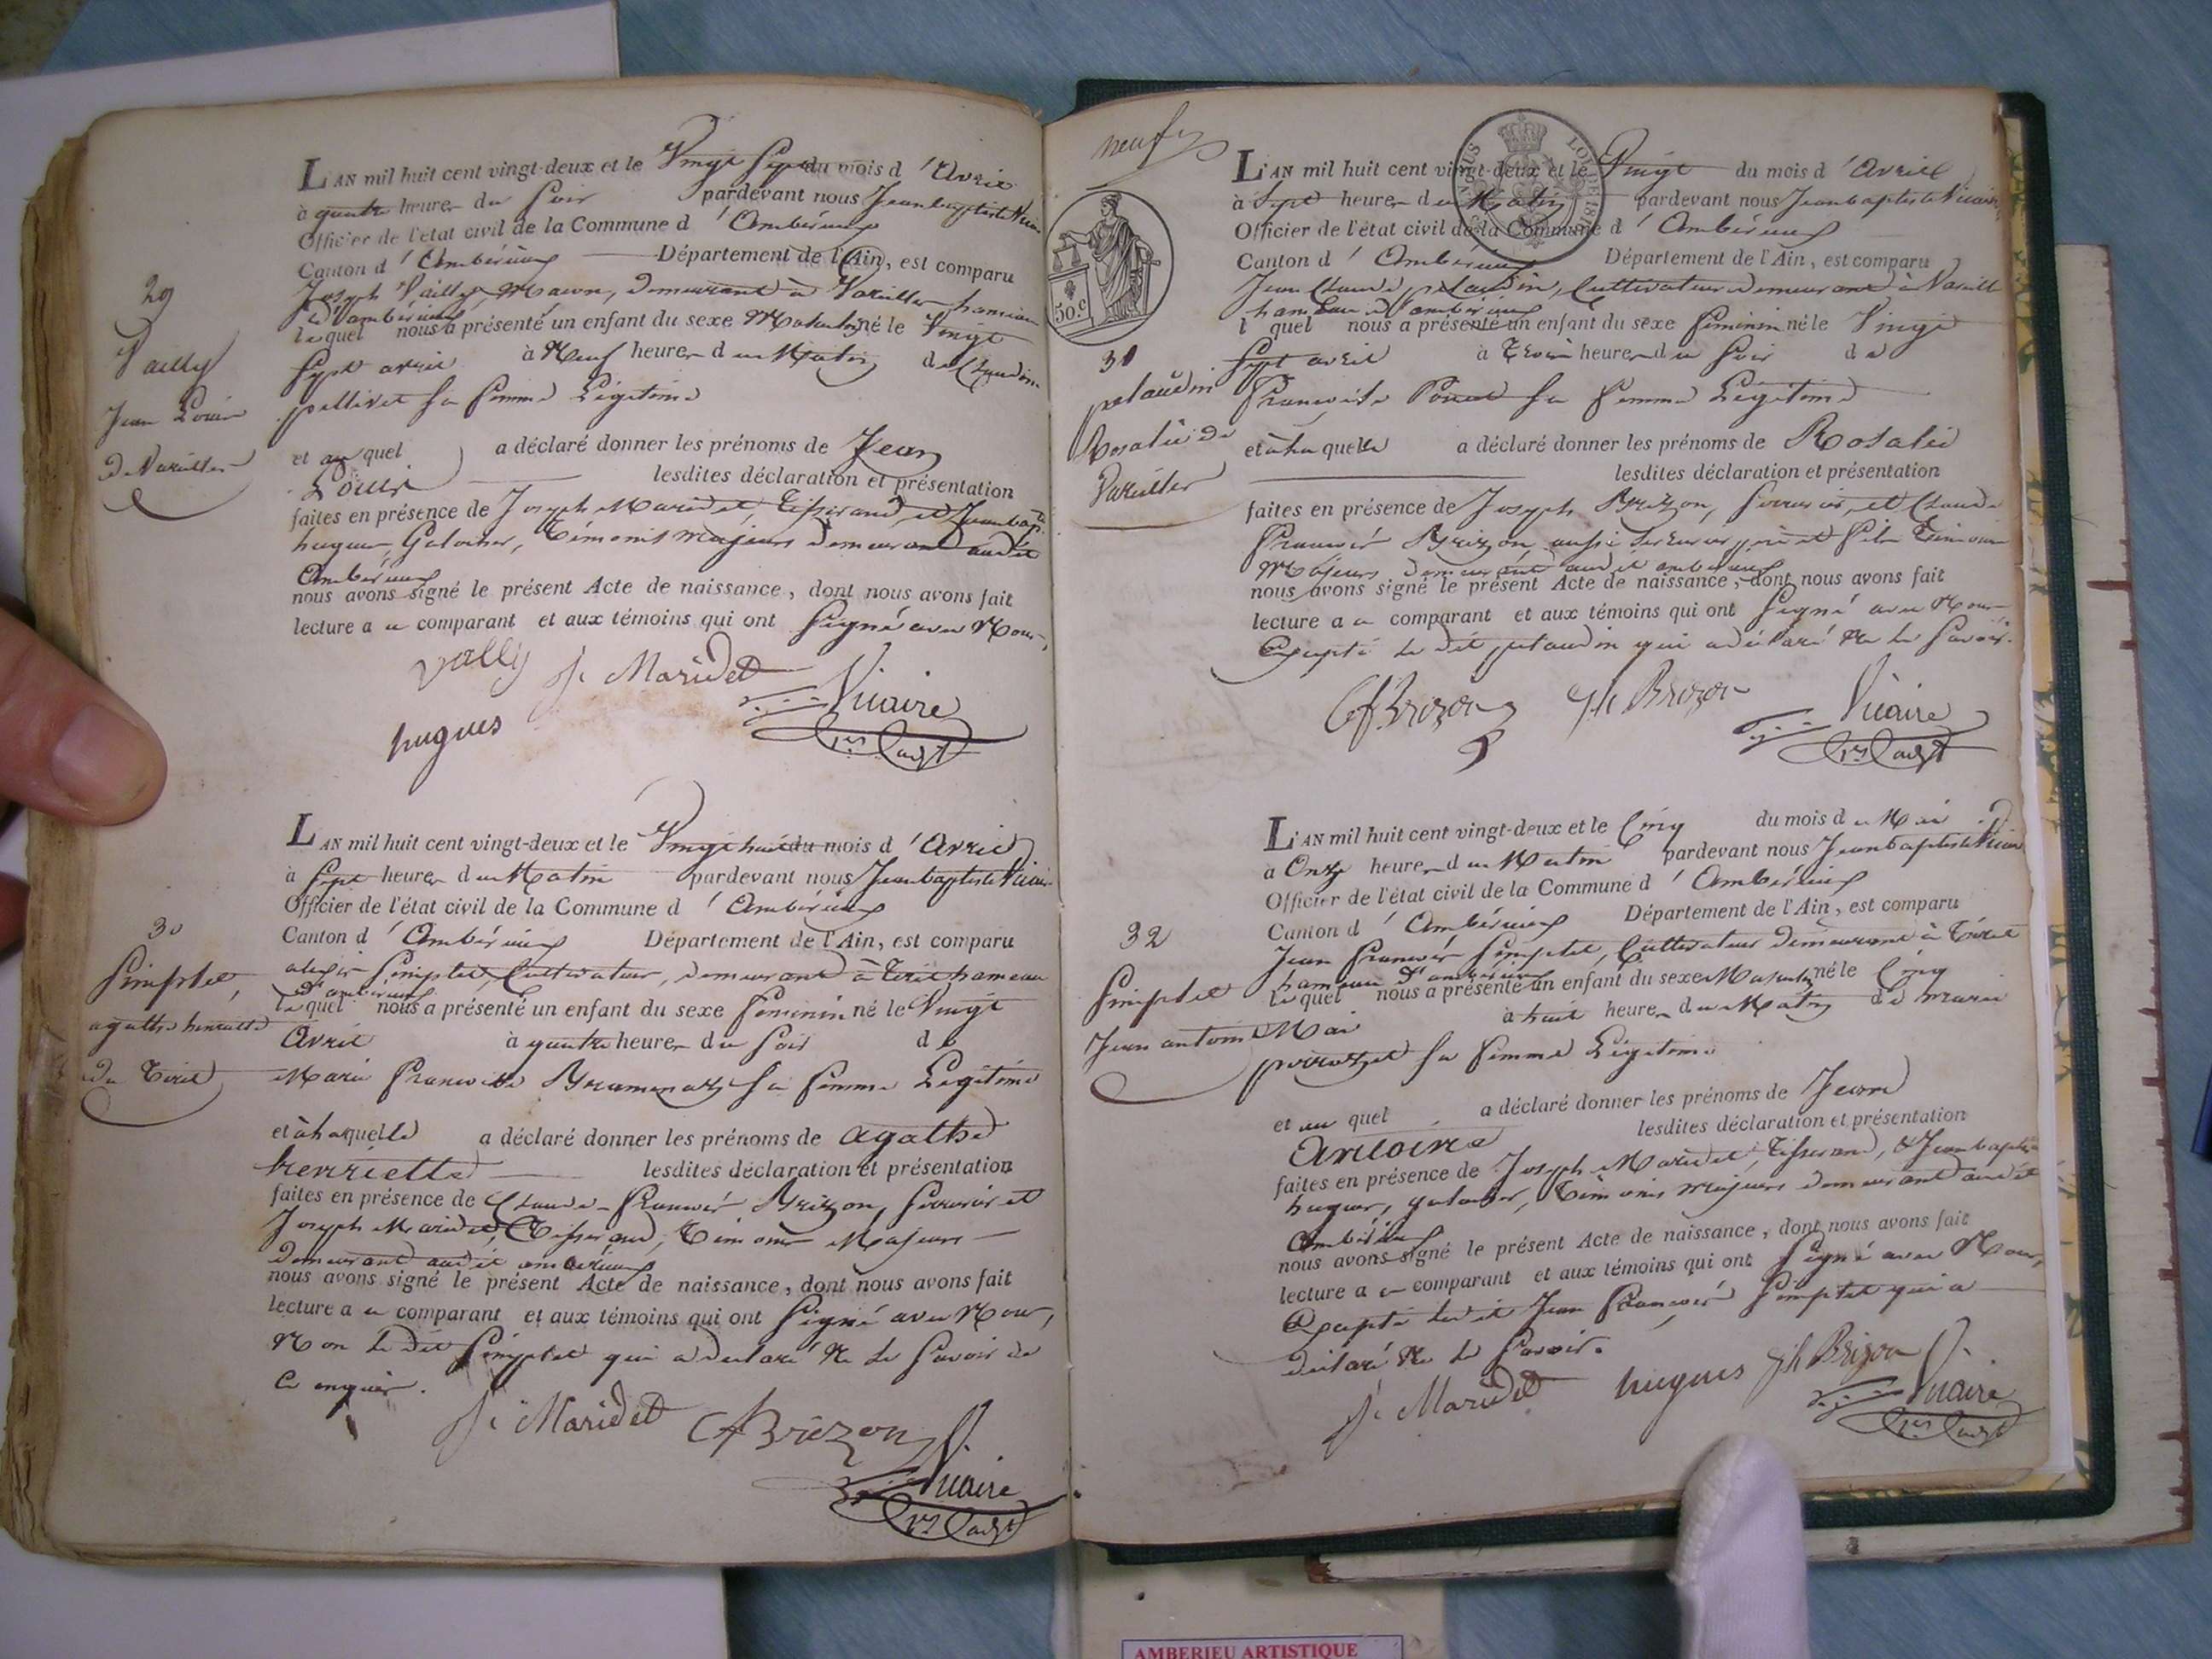 29
Vailly
Jean Louis
de Vareilles
L'AN mil huit cent vingt-deux et le Vingt Sept du mois d'Avril
à quatre heures du Soir pardevant nous Jean baptiste Vicaire
Officier de l'état civil de la Commune d'Ambérieux
Canton d'Ambérieux Département de l'Ain, est comparu
Joseph Vailly, Maçon, demeurant à Vareilles hameau
d'ambérieux
lequel nous a présenté un enfant du sexe Masculin né le Vingt
Sept avril à Neuf heures du Matin de Claudine
pellivet Sa femme Légitime
et au quel a déclaré donner les prénoms de Jean
Louis lesdites déclaration et présentation
faites en présence de Joseph Maridet, Tisserand, et Jean bapte
hugues, Galocher, Témoins majeurs demeurant audit
Ambérieux
nous avons signé le présent Acte de naissance, dont nous avons fait
lecture au comparant et aux témoins qui ont Signé avec Nous,
vally J. Maridet
hugues Vicaire
1er adjt
30
Simplet,
agathe henriette
du Tiret
L'AN mil huit cent vingt-deux et le Vingt huit du mois d'Avril
à Sept heures du Matin pardevant nous Jean baptiste Vicaire
Officier de l'état civil de la Commune d'Ambérieux
Canton d'Ambérieux Département de l'Ain, est comparu
alexis Simplet, Cultivateur, demeurant à Tiret hameau
d'ambérieux
lequel nous a présenté un enfant du sexe féminin né le Vingt
Avril à quatre heures du Soir de
Marie Françoise Brumenaz Sa femme Légitime
et à laquelle a déclaré donner les prénoms de agathe
henriette lesdites déclaration et présentation
faites en présence de Claude-François Brizon, Serrurier et
Joseph Maridet, Tisserand, Témoins Majeurs
demeurant audit ambérieux
nous avons signé le présent Acte de naissance, dont nous avons fait
lecture au comparant et aux témoins qui ont Signé avec Nous,
Non le dit Simplet qui a declaré Ne le Savoir de
Ce enquis.
J. Maridet CF Brizon
Vicaire
1er adjt
neuf
50.c
31
pelaudin
Rosalie de
Vareilles
L'AN mil huit cent vingt-deux et le Vingt du mois d'Avril
à Sept heures du Matin pardevant nous Jean baptiste Vicaire
Officier de l'état civil de la Commune d'Ambérieux
Canton d'Ambérieux Département de l'Ain, est comparu
Jean Claude pelaudin, Cultivateur demeurant à Vareille
hameau d'ambérieux
lequel nous a présenté un enfant du sexe féminin né le Vingt
Sept avril à Trois heures du Soir de
Françoise Sa femme Légitime
et à laquelle a déclaré donner les prénoms de Rosalie
lesdites déclaration et présentation
faites en présence de Joseph Brizon, Serrurier, et Claude
François Brizon, aussi Serrurier, père et fils Témoins
Majeurs demeurant audit ambérieux
nous avons signé le présent Acte de naissance, dont nous avons fait
lecture au comparant et aux témoins qui ont Signé avec Nous
Excepté le dit pelaudin qui a déclaré Ne le Savoir.
CfBrizon Jh Brizon Vicaire
1er adjt
32
Simplet
Jean antoine
L'AN mil huit cent vingt-deux et le Cinq du mois de Mai
à Onze heures du Matin pardevant nous Jean baptiste Vicaire
Officier de l'état civil de la Commune d'Ambérieux
Canton d'Ambérieux Département de l'Ain, est comparu
Jean François Simplet, Cultivateur demeurant à Tiret
hameau d'ambérieux
lequel nous a présenté un enfant du sexe Masculin né le Cinq
Mai à huit heures du Matin de marie
Sa femme Légitime
et au quel a déclaré donner les prénoms de Jean
Antoine lesdites déclaration et présentation
faites en présence de Joseph Maridet, Tisserand, & Jean baptiste
hugues, galocher, Témoins majeurs demeurant audit
Ambérieux
nous avons signé le présent Acte de naissance, dont nous avons fait
lecture au comparant et aux témoins qui ont Signé avec Nous,
Excepté ledit Jean François Simplet qui a
déclaré Ne le Savoir.
J. Maridet hugues Jh Brizon Vicaire
1er adjt
AMBERIEU ARTISTIQUE